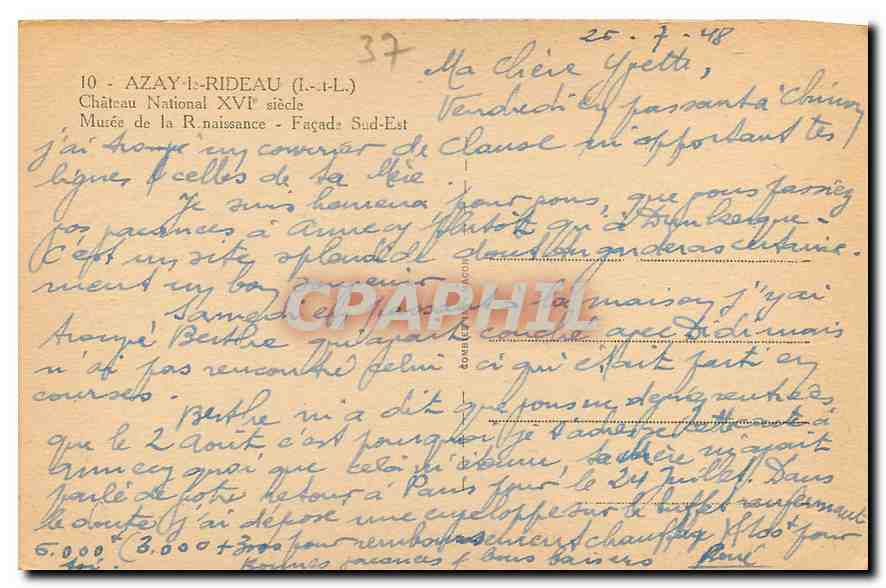 37
25-7-48
10 - AZAY-le-RIDEAU (I.-et-L.)
Château National XVIe siècle
Musée de la Renaissance - Façade Sud-Est
Ma Chère Yvette,
Vendredi en passant à Chinon
j'ai trouvé un courrier de Clause m'apportant tes
lignes & celles de ta Mère.
Je suis heureux pour vous, que vous passiez
vos vacances à Annecy plutôt qu'à Dunkerque -
C'est un site splendide dont on garderas certaine-
ment un bon souvenir.
Samedi en passant à la maison j'y ai
trouvé Berthe qui avait couché avec Didi mais
n'ai pas rencontré celui-ci qui était parti en
courses.
Berthe m'a dit que vous ne deviez rentrer
que le 2 Août c'est pourquoi je t'adresse cette carte à
Annecy quoi que cela m'étonne, ta Mère m'ayant
parlé de votre retour à Paris pour le 24 Juillet. Dans
le doute j'ai déposé une enveloppe sur le buffet renfermant
6.000f (3.000 + 3000 pour remboursement chauffage) pour
toi. Bonnes vacances & bons baisers René
COMBIER MACON
CPAPHIL